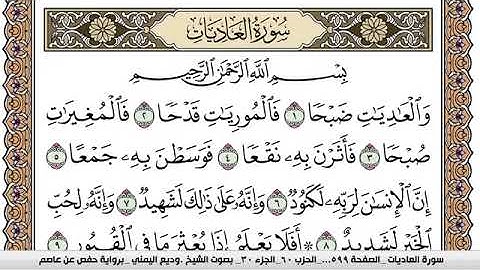 سورة العاديات
بسم الله الرحمن الرحيم
وَٱلْعَٰدِيَٰتِ ضَبْحًا ١ فَٱلْمُورِيَٰتِ قَدْحًا ٢ فَٱلْمُغِيرَٰتِ
صُبْحًا ٣ فَأَثَرْنَ بِهِۦ نَقْعًا ٤ فَوَسَطْنَ بِهِۦ جَمْعًا ٥
إِنَّ ٱلْإِنسَٰنَ لِرَبِّهِۦ لَكَنُودٌ ٦ وَإِنَّهُۥ عَلَىٰ ذَٰلِكَ لَشَهِيدٌ ٧ وَإِنَّهُۥ لِحُبِّ
ٱلْخَيْرِ لَشَدِيدٌ ٨ أَفَلَا يَعْلَمُ إِذَا بُعْثِرَ مَا فِى ٱلْقُبُورِ ٩
سورة العاديات _ الصفحة ٥٩٩... الحزب ٦٠_ الجزء ٣٠_ بصوت الشيخ _وديع اليمني _برواية حفص عن عاصم